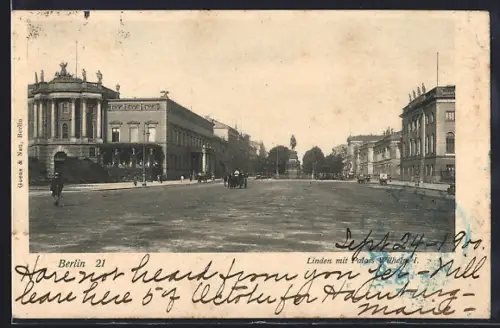 Quenz & Neu, Berlin
Berlin 21
Linden mit Palais Wilhelm I.
Sept 24-1900.
Have not heard from you yet - Will
leave here 5th October for Hamburg -
Marie -